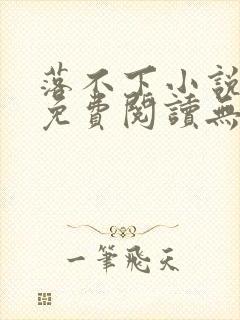 落不下小說
免費閱讀無
一筆飛天